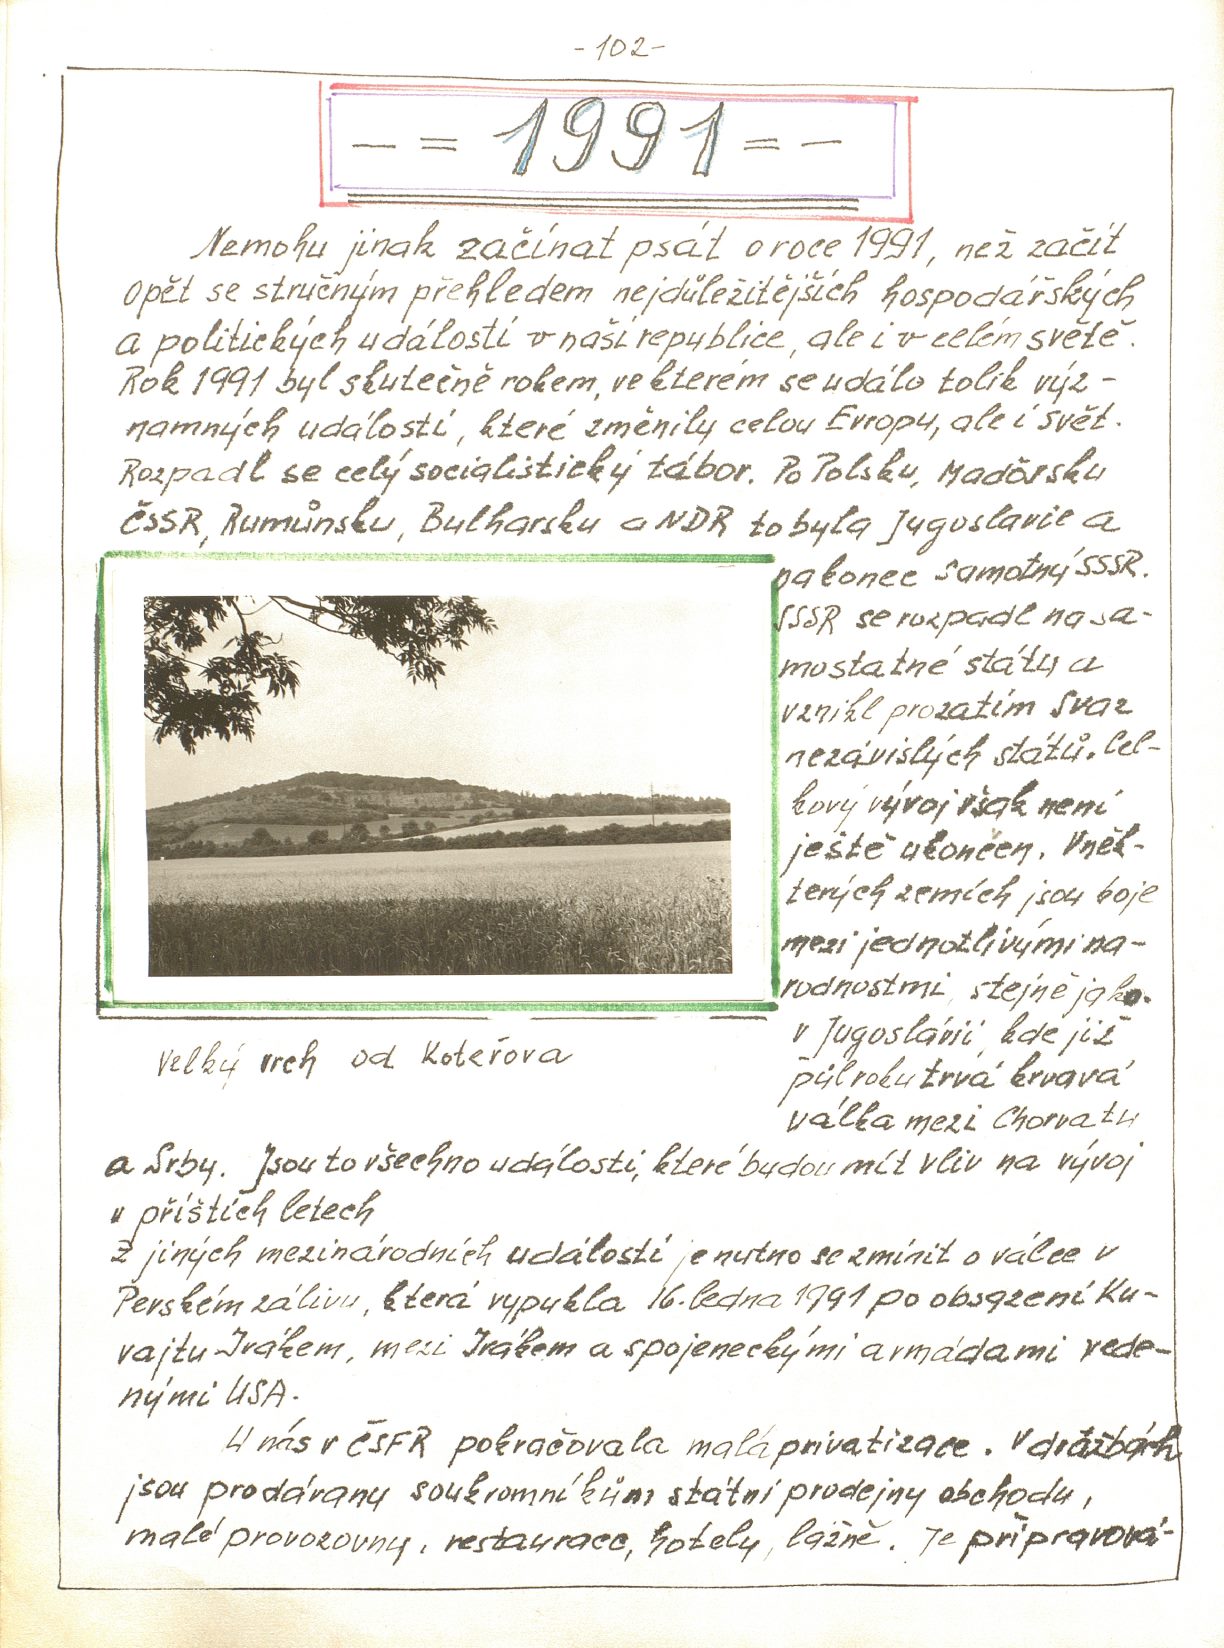 -102-
- = 1991 = -
Nemohu jinak začínat psát o roce 1991, než začít
opět se stručným přehledem nejdůležitějších hospodářských
a politických událostí v naší republice, ale i v celém světě.
Rok 1991 byl skutečně rokem, ve kterém se událo tolik výz-
namných událostí, které změnily celou Evropu, ale i svět.
Rozpadl se celý socialistický tábor. Po Polsku, Maďarsku
ČSSR, Rumůnsku, Bulharsku a NDR to byla Jugoslavie a
nakonec samotný SSSR.
SSSR se rozpadl na sa-
mostatné státy a
vznikl prozatím Svaz
nezávislých států. Cel-
kový vývoj však není
ještě ukončen. V něk-
terých zemích jsou boje
mezi jednotlivými ná-
rodnostmi, stejně jako
v Jugoslávii, kde již
půl roku trvá krvavá
válka mezi Chorvaty
Velký vrch od Koteřova
a Srby. Jsou to všechno události, které budou mít vliv na vývoj
v příštích letech
Z jiných mezinárodních událostí je nutno se zmínit o válce v
Perském zálivu, která vypukla 16. ledna 1991 po obsazení Ku-
vajtu Irákem, mezi Irákem a spojeneckými armádami vede-
nými USA.
U nás v ČSFR pokračovala malá privatizace. V dražbách
jsou prodávány soukromníkům státní prodejny obchodu,
malé provozovny, restaurace, hotely, lázně. Je připravová-